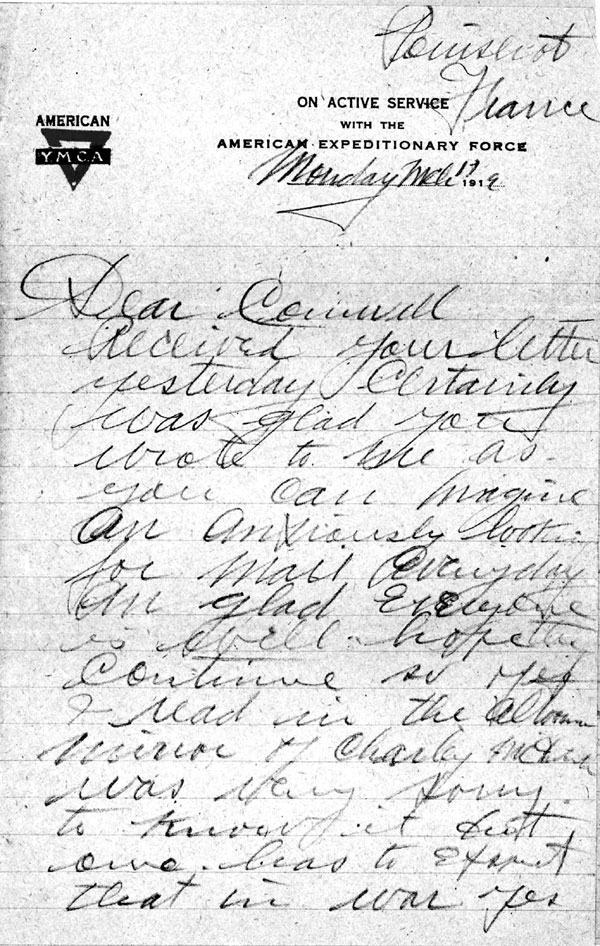 France
AMERICAN
YMCA
ON ACTIVE SERVICE
WITH THE
AMERICAN EXPEDITIONARY FORCE
Monday Mch 17 1919
Dear
Received your letter
yesterday Certainly
was glad you
wrote to me as
you can imagine
am anxiously looking
for mail everyday
am glad Everyone
is well hope they
continue so yes
I read in the
mirror of Charly
was very sorry
to know it but
one has to expect
that in war yes